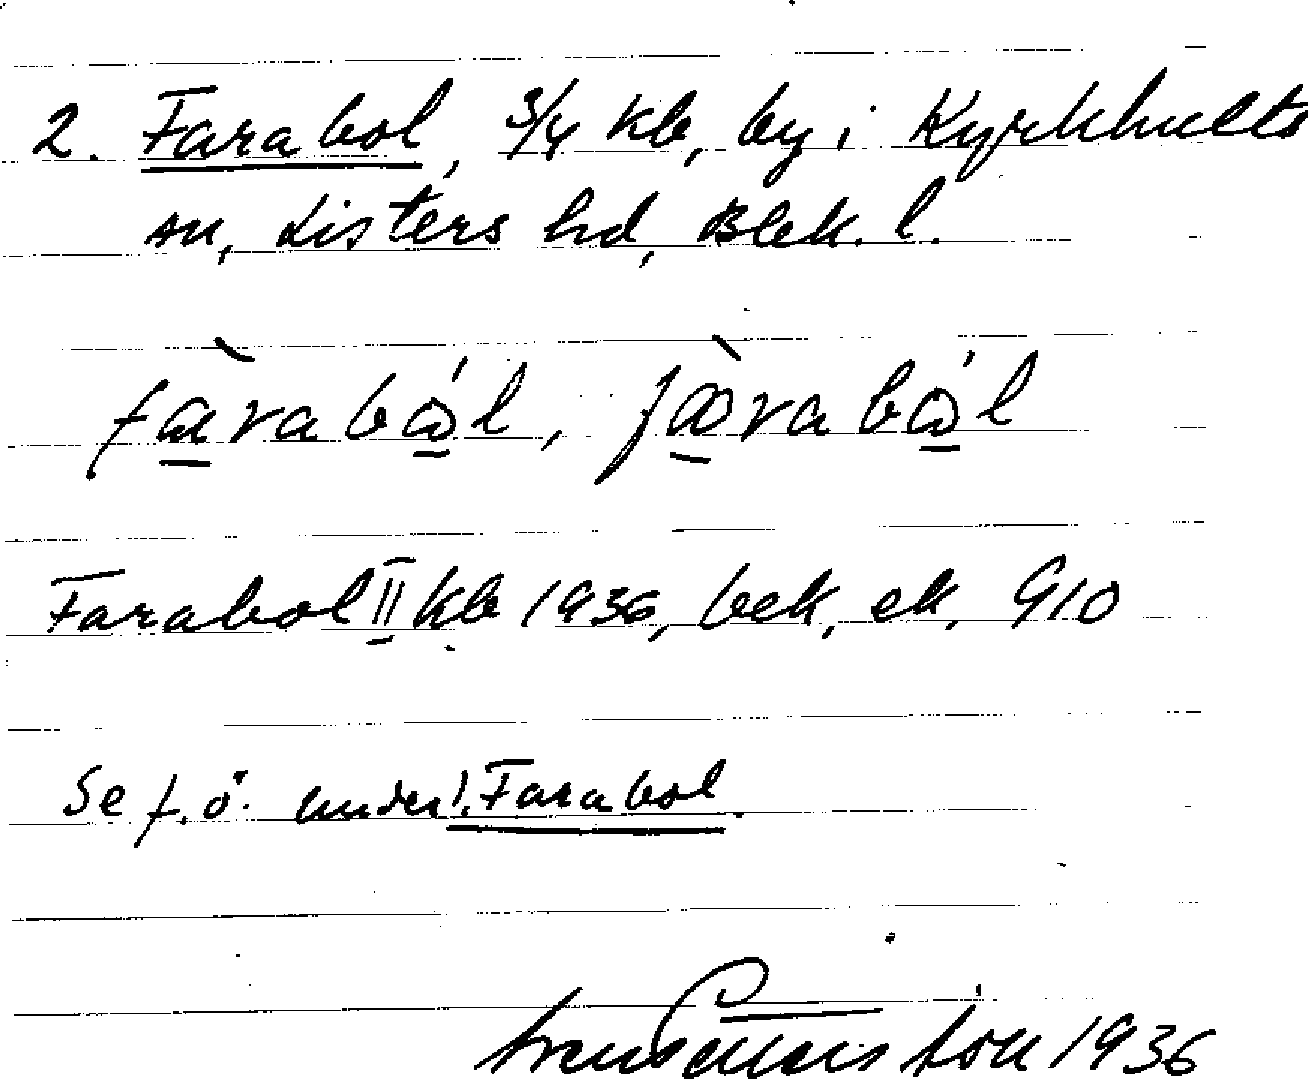 2. Farabol, 3/4 kb, by i Kyrkhults
sn, Listers hd, Blek. l.
Farabol II kb 1936, bek, ek. 910
Se f. ö. under 1. Farabol.
1936